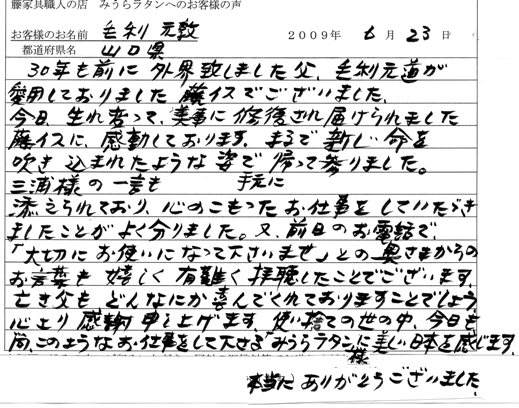 藤家具職人の店 みうらラタンへのお客様の声
お客様のお名前 毛利 元敦 2009年 6月 23日
都道府県名 山口県
30年も前に 外界致しました父、毛利元道が
愛用しておりました 藤イスでございました。
今日、生れ変って、美事に修復され届けられました
藤イスに、感動しております。まるで新しい命を
吹き込まれたような姿で帰って参りました。
三浦様の一言も 手元に
添えられており、心のこもったお仕事をしていただき
ましたことがよく分りました。又、前日のお電話で、
「大切にお使いになって下さいませ」との奥さまからの
お言葉も 嬉しく 有難く拝聴したことでございます。
亡き父も どんなにか喜んでくれておりますことでしょう。
心より 感謝 申し上げます。使い捨ての世の中、今日も
尚、このようなお仕事をして下さる みうらラタン様に美しい日本を感じます。
本当に ありがとうございました。